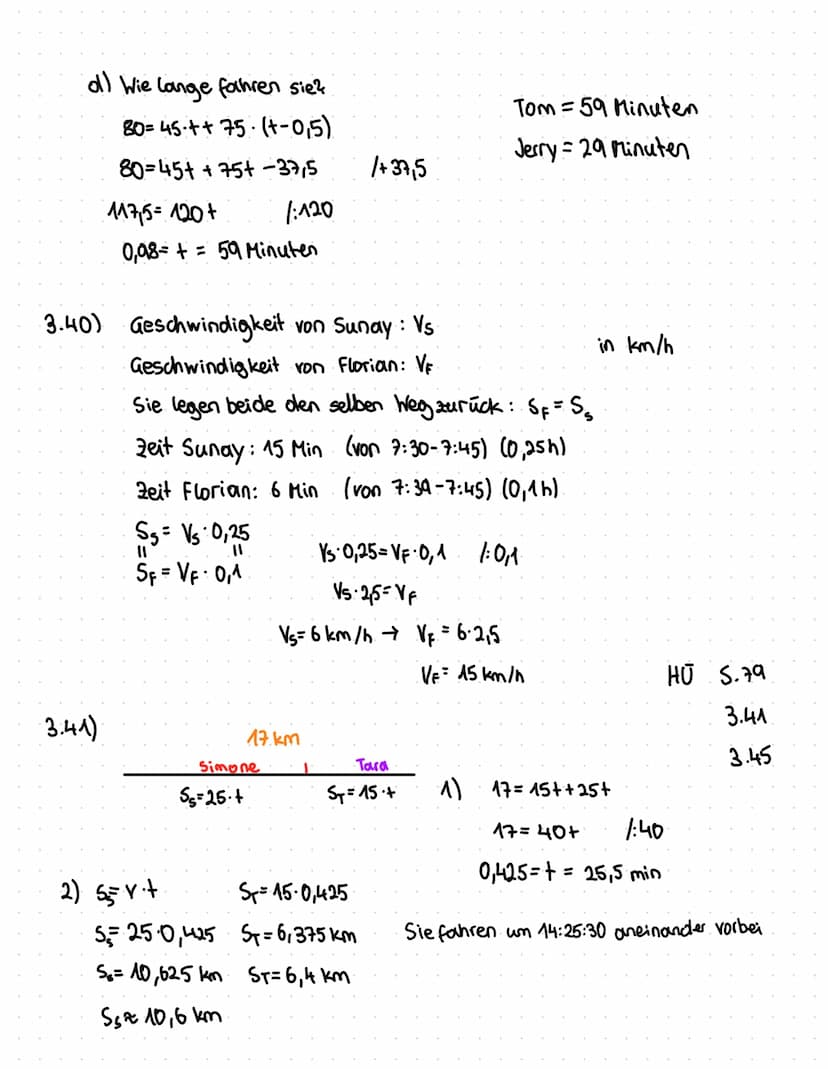 d) Wie lange fahren sie?
80 = 45·t + 75·(t-0,5)
80 = 45t + 75t - 37,5 /+37,5
117,5 = 120t /:120
0,98 = t = 59 Minuten
Tom = 59 Minuten
Jerry = 29 Minuten
3.40) Geschwindigkeit von Sunay: Vs
Geschwindigkeit von Florian: VF
in km/h
Sie legen beide den selben Weg zurück: SF = Ss
Zeit Sunay: 15 Min (von 7:30-7:45) (0,25h)
Zeit Florian: 6 Min (von 7:39-7:45) (0,1h)
Ss = Vs·0,25
|| ||
SF = VF·0,1
Vs·0,25 = VF·0,1 /:0,1
Vs·2,5 = VF
Vs = 6 km/h → VF = 6·2,5
VF = 15 km/h
HÜ S.79
3.41
3.45
3.41)
17 km
Simone | Tara
Ss = 25·t ST = 15·t
1) 17 = 15t + 25t
17 = 40t /:40
0,425 = t = 25,5 min
2) Ss = v·t ST = 15·0,425
Ss = 25·0,425 ST = 6,375 km
Ss = 10,625 km ST = 6,4 km
Ss ≈ 10,6 km
Sie fahren um 14:25:30 aneinander vorbei